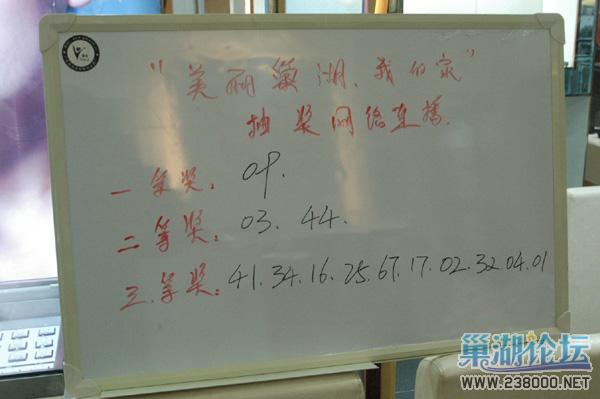 “美丽巢湖、我的家”
抽奖网络直播.
一等奖: 09.
二等奖: 03. 44.
三等奖: 41.34.16.25.67.17.02.32.04.01
巢湖论坛
WWW.238000.NET